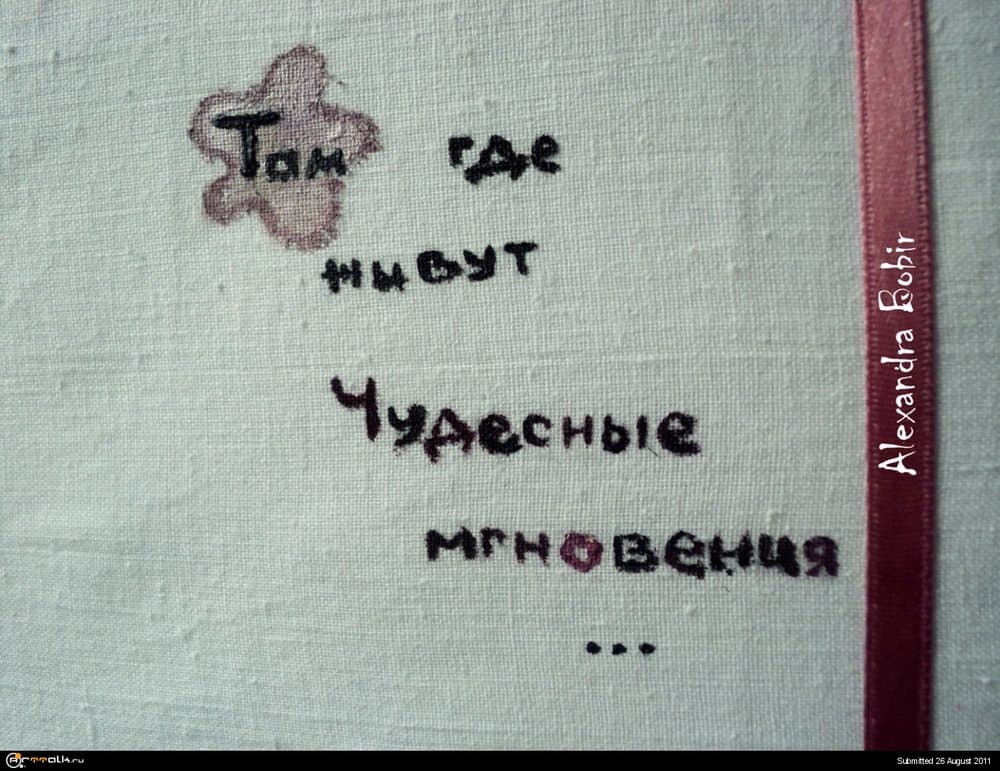 Там где
живут
Чудесные
мгновения
...
Alexandra Bobir
Arttalk.ru
Submitted 26 August 2011